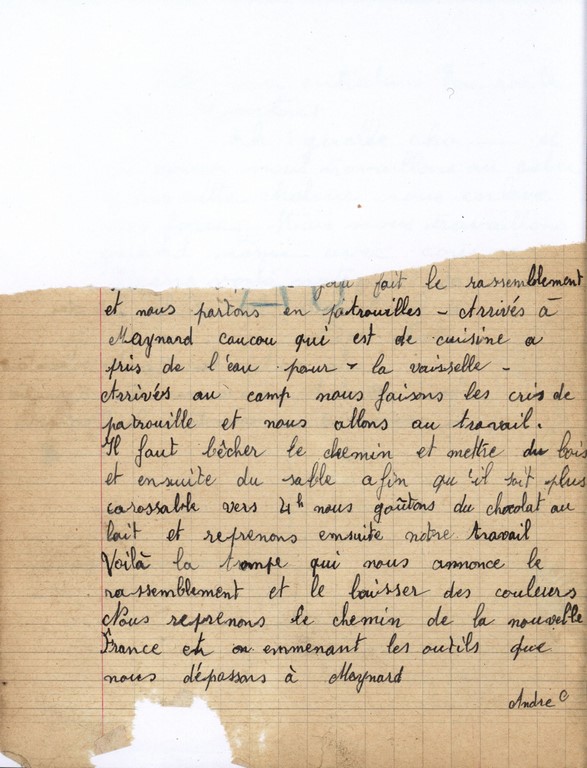 fait le rassemblement
et nous partons en patrouilles - Arrivés à
Maynard coucou qui est de cuisine a
pris de l'eau pour la vaisselle -
Arrivés au camp nous faisons les cris de
patrouille et nous allons au travail.
Il faut bêcher le chemin et mettre du bois
et ensuite du sable afin qu'il soit plus
carossable vers 4h nous goûtons du chocolat au
lait et reprenons ensuite notre travail
Voilà la trompe qui nous annonce le
rassemblement et le baisser des couleurs
Nous reprenons le chemin de la nouvelle
France et en emmenant les outils que
nous dépassons à Maynard
André C